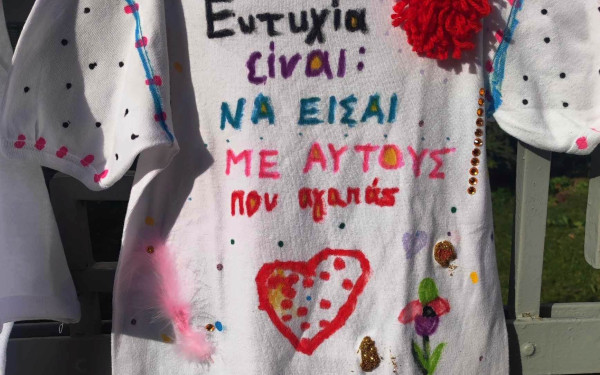 Ευτυχία
είναι:
ΝΑ ΕΙΣΑΙ
ΜΕ ΑΥΤΟΥΣ
που αγαπάς